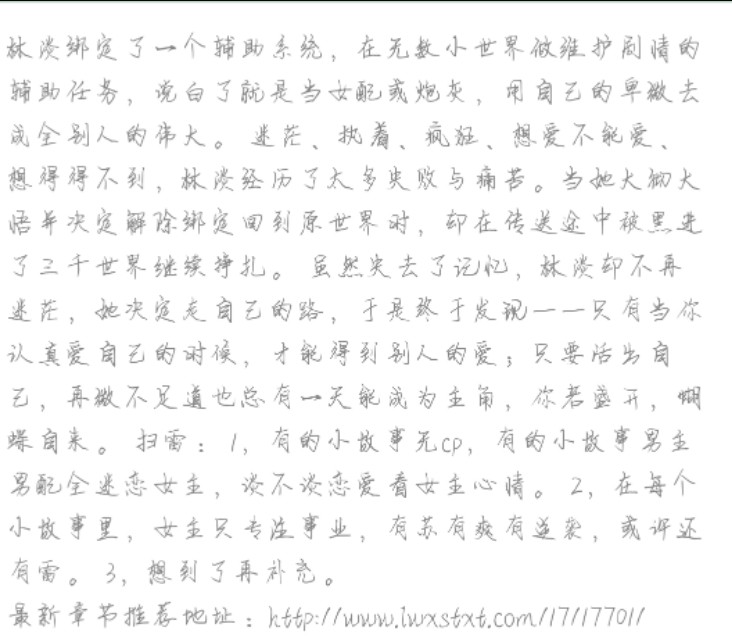 林淡绑定了一个辅助系统，在无数小世界做维护剧情的
辅助任务，说白了就是当女配或炮灰，用自己的卑微去
成全别人的伟大。迷茫、执着、疯狂、想爱不能爱、
想得得不到，林淡经历了太多失败与痛苦。当她大彻大
悟并决定解除绑定回到原世界时，却在传送途中被黑进
了三千世界继续挣扎。虽然失去了记忆，林淡却不再
迷茫，她决定走自己的路，于是终于发现——只有当你
认真爱自己的时候，才能得到别人的爱；只要活出自
己，再微不足道也总有一天能成为主角，你若盛开，蝴
蝶自来。扫雷：1，有的小故事无cp，有的小故事男主
男配全迷恋女主，谈不谈恋爱看女主心情。2，在每个
小故事里，女主只专注事业，有苏有爽有逆袭，或许还
有雷。3，想到了再补充。
最新章节推荐地址：http://www.lwxstxt.com/17/17701/